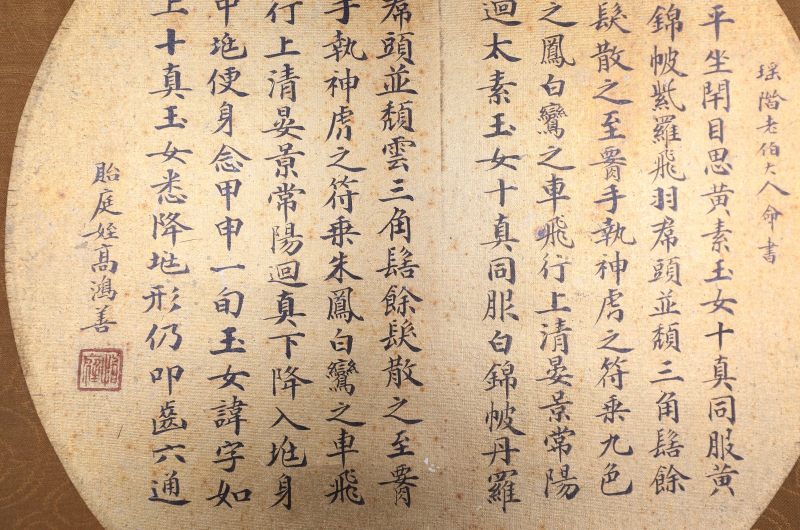 瑶階老伯大人命書
平坐閉目思黄素玉女十真同服黄
錦帔紫羅飛羽帬頭並頽三角髻餘
髮散之至𦝫手執神虎之符乗九色
之鳳白鸞之車飛行上清晏景常陽
迴太素玉女十真同服白錦帔丹羅
帬頭並頽雲三角髻餘髮散之至𦝫
手執神虎之符乗朱鳳白鸞之車飛
行上清晏景常陽迴真下降入兆身
中兆便身念甲申一旬玉女諱字如
上十真玉女悉降兆形仍叩齒六通
貽庭姪高鴻善